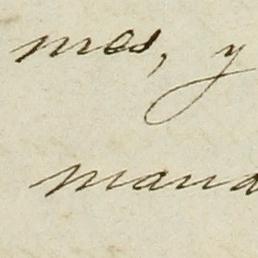 mes, y
mand